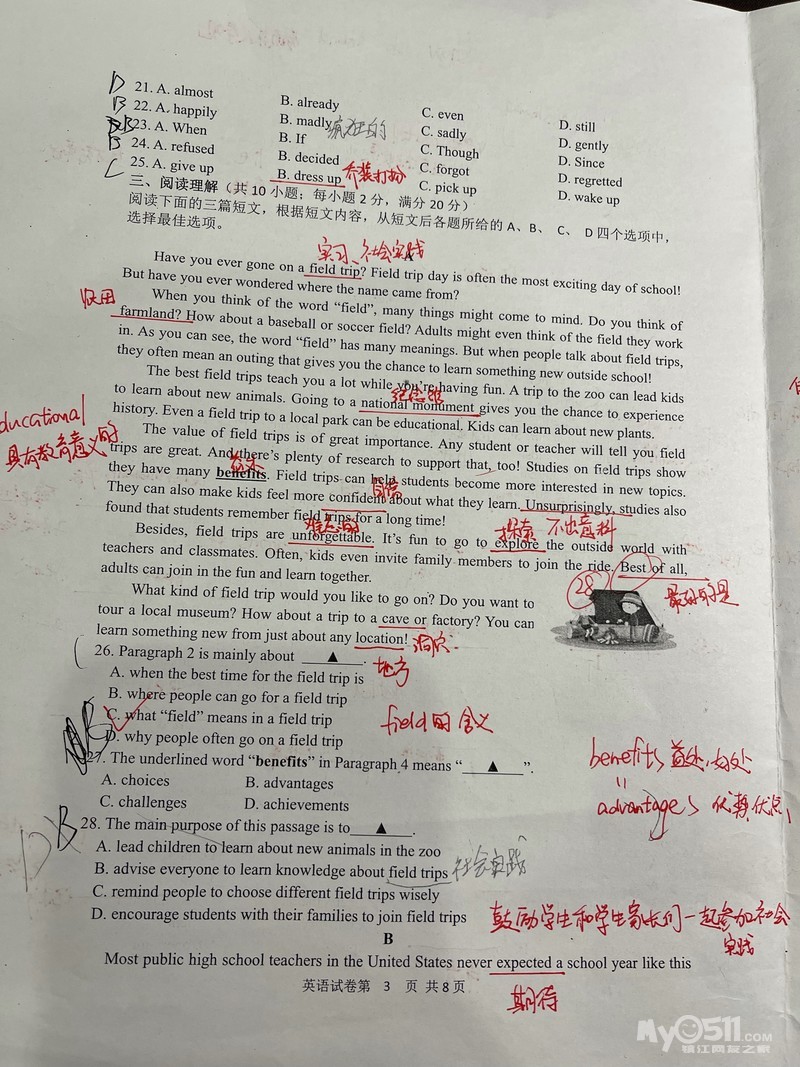 D 21. A. almost B. already C. even D. still
B 22. A. happily B. madly 疯狂的 C. sadly D. gently
B 23. A. When B. If C. Though D. Since
B 24. A. refused B. decided C. forgot D. regretted
C 25. A. give up B. dress up 乔装打扮 C. pick up D. wake up
三、阅读理解（共 10 小题；每小题 2 分，满分 20 分）
阅读下面的三篇短文，根据短文内容，从短文后各题所给的 A、B、 C、 D 四个选项中，
选择最佳选项。
实习、社会实践
A
Have you ever gone on a field trip? Field trip day is often the most exciting day of school!
But have you ever wondered where the name came from?
When you think of the word “field”, many things might come to mind. Do you think of
farmland? How about a baseball or soccer field? Adults might even think of the field they work
in. As you can see, the word “field” has many meanings. But when people talk about field trips,
they often mean an outing that gives you the chance to learn something new outside school!
The best field trips teach you a lot while you’re having fun. A trip to the zoo can lead kids
to learn about new animals. Going to a national monument gives you the chance to experience
history. Even a field trip to a local park can be educational. Kids can learn about new plants.
ducational
具有教育意义的
The value of field trips is of great importance. Any student or teacher will tell you field
trips are great. And there’s plenty of research to support that, too! Studies on field trips show
they have many benefits. Field trips can help students become more interested in new topics.
They can also make kids feel more confident about what they learn. Unsurprisingly, studies also
found that students remember field trips for a long time!
难忘的 探索 不出意料
Besides, field trips are unforgettable. It’s fun to go to explore the outside world with
teachers and classmates. Often, kids even invite family members to join the ride. Best of all,
adults can join in the fun and learn together.
28
最好的是
What kind of field trip would you like to go on? Do you want to
tour a local museum? How about a trip to a cave or factory? You can
learn something new from just about any location! 洞穴
地方
26. Paragraph 2 is mainly about ▲ .
A. when the best time for the field trip is
B. where people can go for a field trip
C. what “field” means in a field trip field的含义
D. why people often go on a field trip
B 27. The underlined word “benefits” in Paragraph 4 means “ ▲ ”.
A. choices B. advantages
C. challenges D. achievements
benefits 益处,好处
=
advantages 优势,优点
B 28. The main purpose of this passage is to ▲ .
A. lead children to learn about new animals in the zoo
B. advise everyone to learn knowledge about field trips 社会实践
C. remind people to choose different field trips wisely
D. encourage students with their families to join field trips
鼓励学生和学生家长们一起参加社会
实践
B
Most public high school teachers in the United States never expected a school year like this
期待
英语试卷第 3 页 共 8 页
My0511.COM
镇江网友之家